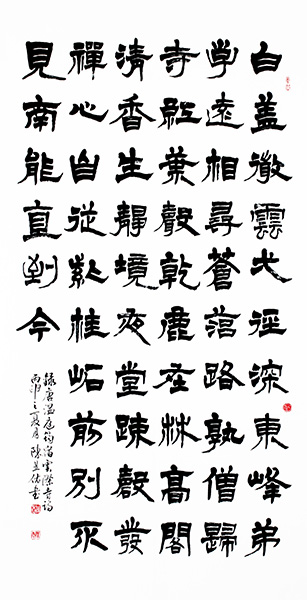 白盖微雲弌徑深東峰弟
子遠相尋蒼苔路孰僧歸
寺紅葉聲乾鹿在林高閣
清香生靜境夜堂疎磬發
禪心自從紫桂岩前別不
見南能直到今
錄唐溫庭筠宿雲際寺詩
丙申之夏月陳書